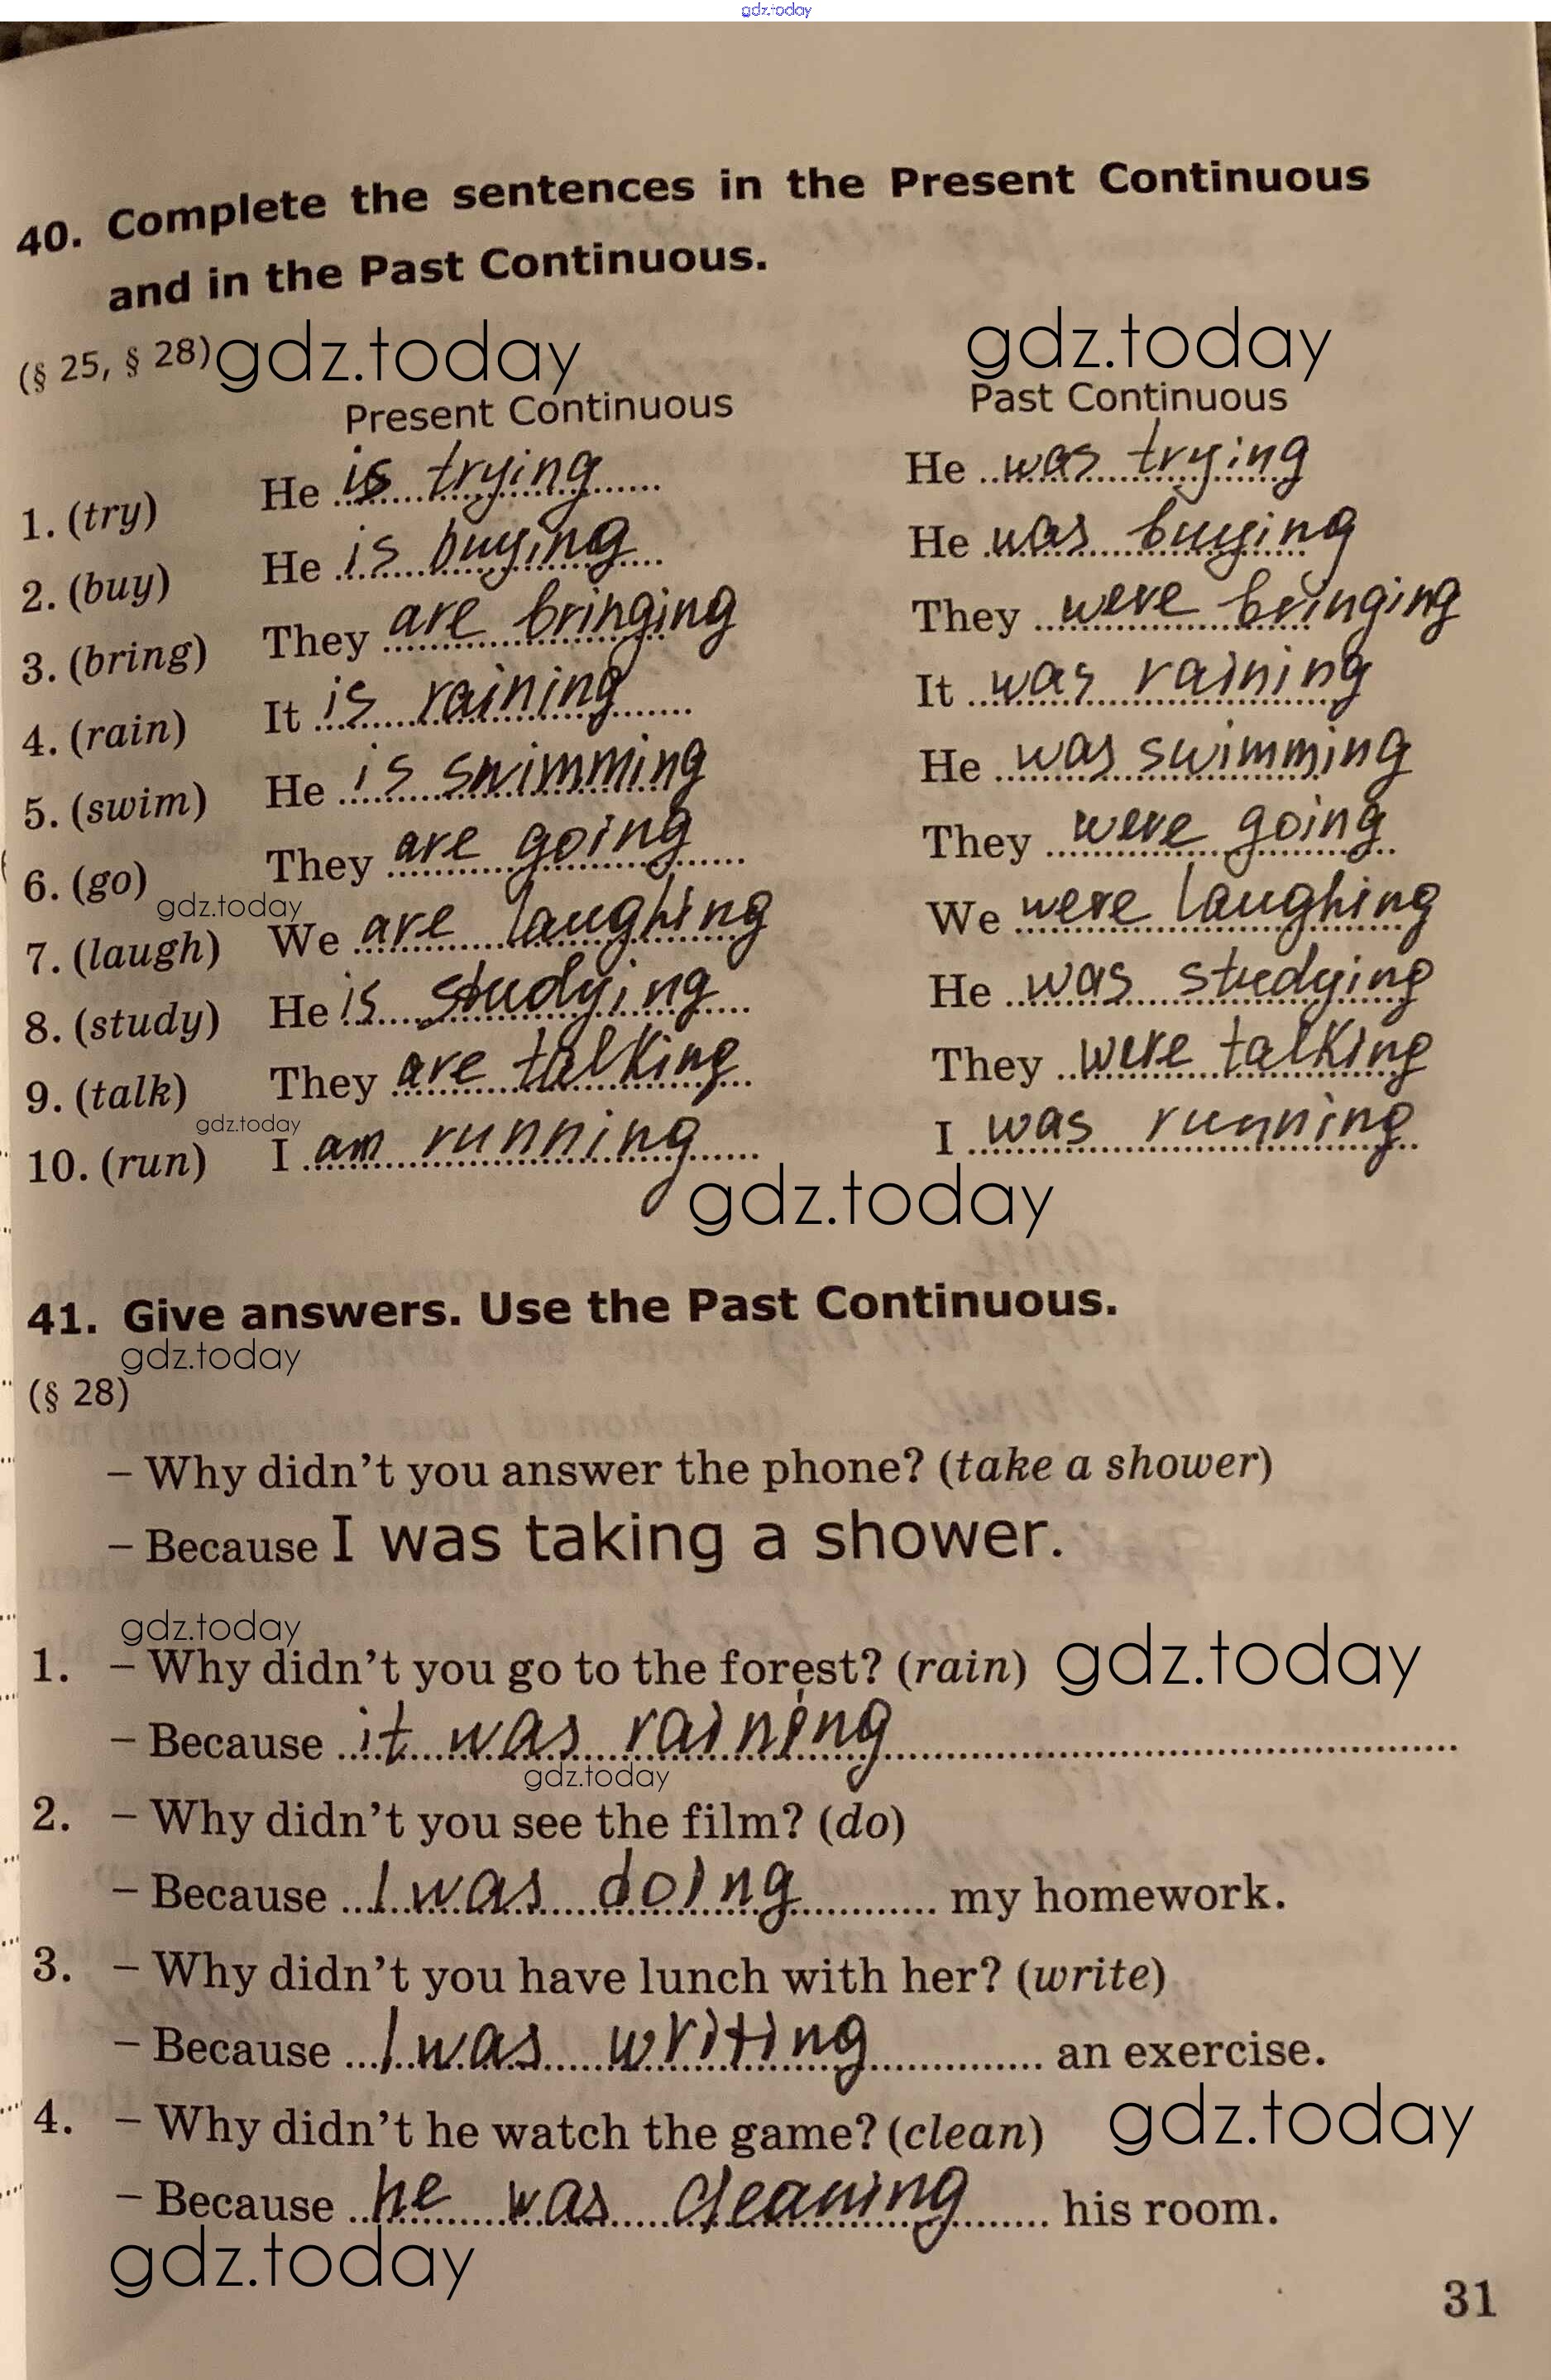 gdz.today
40. Complete the sentences in the Present Continuous
and in the Past Continuous.
(§ 25, § 28) gdz.today gdz.today
Present Continuous Past Continuous
1. (try) He is trying He was trying
2. (buy) He is buying He was buying
3. (bring) They are bringing They were bringing
4. (rain) It is raining It was raining
5. (swim) He is swimming He was swimming
6. (go) They are going They were going
gdz.today
7. (laugh) We are laughing We were laughing
8. (study) He is studying He was studying
9. (talk) They are talking They were talking
gdz.today
10. (run) I am running I was running
gdz.today
41. Give answers. Use the Past Continuous.
gdz.today
(§ 28)
– Why didn't you answer the phone? (take a shower)
– Because I was taking a shower.
gdz.today
1. – Why didn't you go to the forest? (rain) gdz.today
– Because it was raining
gdz.today
2. – Why didn't you see the film? (do)
– Because I was doing my homework.
3. – Why didn't you have lunch with her? (write)
– Because I was writing an exercise.
4. – Why didn't he watch the game? (clean) gdz.today
– Because he was cleaning his room.
gdz.today
31